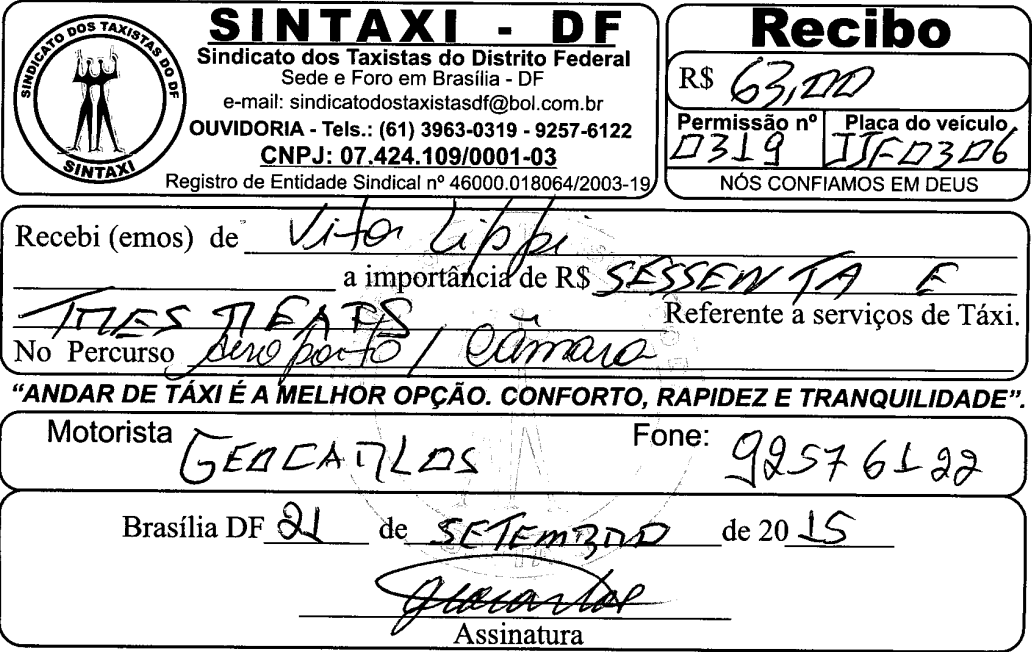 SINDICATO DOS TAXISTAS DO DF
SINTAXI
SINTAXI - DF
Sindicato dos Taxistas do Distrito Federal
Sede e Foro em Brasília - DF
e-mail: sindicatodostaxistasdf@bol.com.br
OUVIDORIA - Tels.: (61) 3963-0319 - 9257-6122
CNPJ: 07.424.109/0001-03
Registro de Entidade Sindical nº 46000.018064/2003-19
Recibo
R$ 63,00
Permissão nº Placa do veículo
0319 JJF0306
NÓS CONFIAMOS EM DEUS
Recebi (emos) de Vitor Lippi
a importância de R$ SESSENTA E
TRES REAIS Referente a serviços de Táxi.
No Percurso Aeroporto / Câmara
“ANDAR DE TÁXI É A MELHOR OPÇÃO. CONFORTO, RAPIDEZ E TRANQUILIDADE”.
Motorista GEOCARLOS Fone: 92576122
Brasília DF 21 de SETEMBRO de 2015
Assinatura